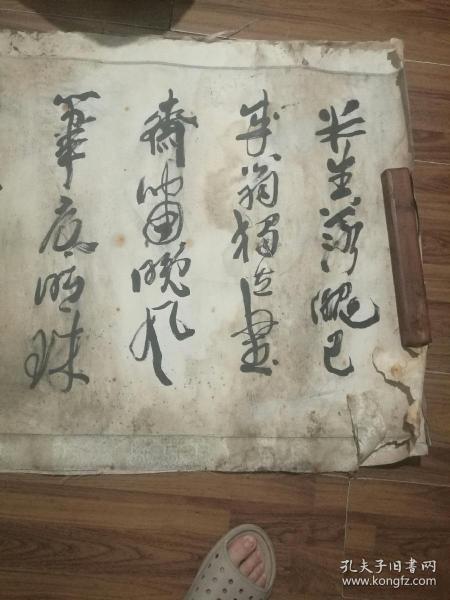 半生落魄已
成翁獨立書
齋嘯晚風
筆底明珠
孔夫子旧书网
www.kongfz.com